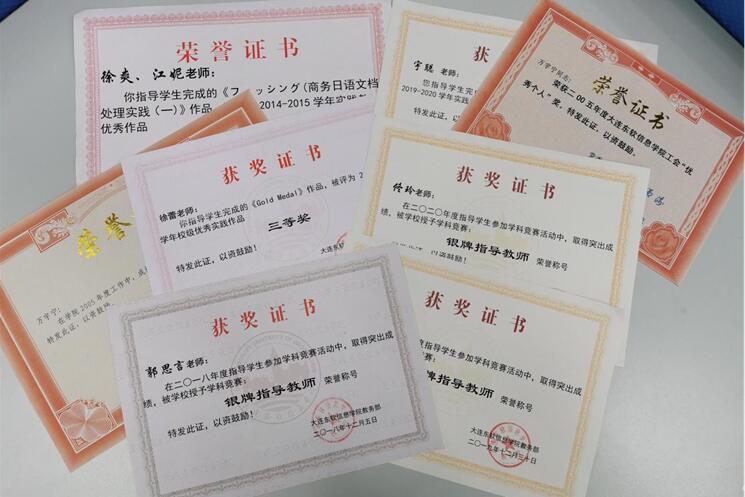 荣誉证书
徐爽、江妮老师:
你指导学生完成的《フィッシング(商务日语文档
处理实践(一)》作品
2014-2015学年
优秀作品
获
宇聪 老师:
您指导学生完成的
2019-2020学年实践
特发此证,以
荣誉证书
万宇宁同志:
荣获二00五年度大连东软信息学院工会"优
秀个人"奖。特发此证,以资鼓励。
获奖证书
徐蕾老师:
你指导学生完成的《Gold Medal》作品,被评为2
学年校级优秀实践作品
三等奖
特发此证,以资鼓励!
大连东软
获奖证书
佟玲老师:
在二〇二〇年度指导学生参加学科竞赛活动中,取得突出成
绩,被学校授予学科竞赛:
银牌指导教师 荣誉称号
此证,以资鼓励!
荣誉
万宇宁:
在学院2005年度工作中,成
特发此证,以资鼓励。
获奖证书
郭思言老师:
在二〇一八年度指导学生参加学科竞赛活动中,取得突出成
绩,被学校授予学科竞赛:
银牌指导教师 荣誉称号
特发此证,以资鼓励!
大连东软信息学院教务部
二〇一八年十二月五日
获奖证书
度指导学生参加学科竞赛活动中,取得突出成
学科竞赛:
银牌指导教师 荣誉称号
鼓励!
大连东软信息学院教务部
二〇一九年十二月三十日